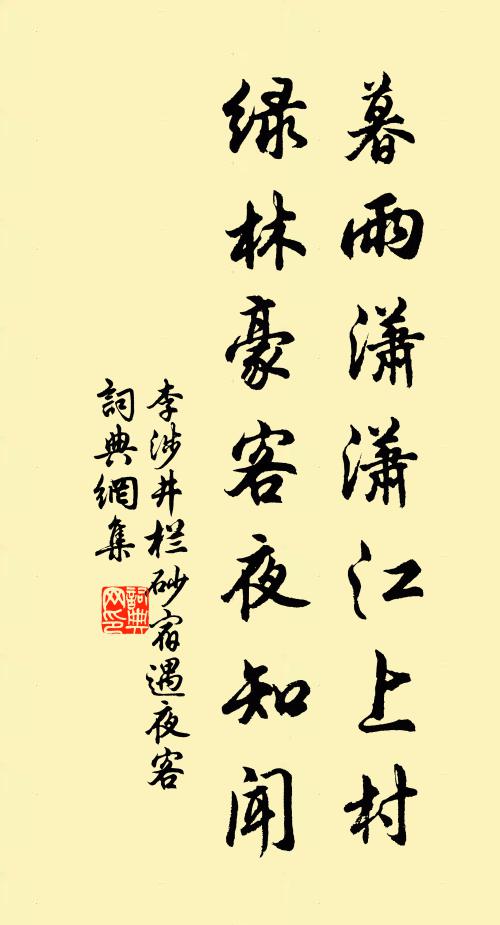 暮雨瀟瀟江上村
绿林豪客夜知聞
李涉井栏砂宿遇夜客
詞典網集
詞典网印